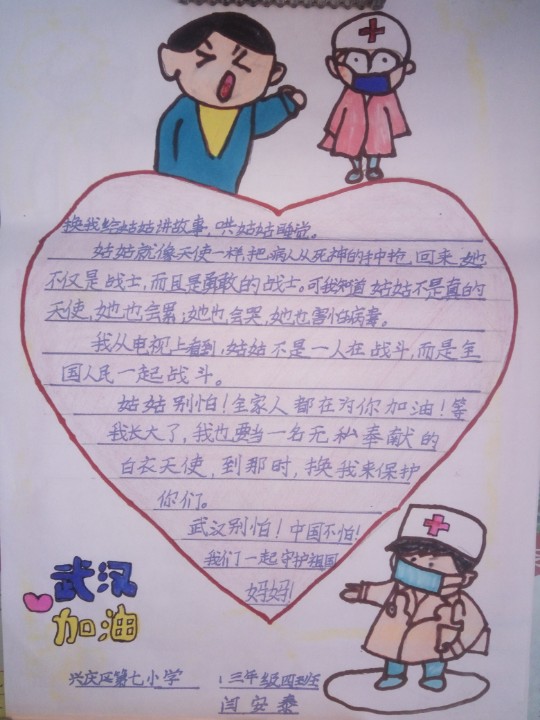 换我给姑姑讲故事,哄姑姑睡觉。
姑姑就像天使一样,把病人从死神的手中抢回来,她
不仅是战士,而且是勇敢的战士。可我知道姑姑不是真的
天使,她也会累,她也会哭,她也害怕病毒。
我从电视上看到,姑姑不是一人在战斗,而是全
国人民一起战斗。
姑姑别怕!全家人都在为你加油!等
我长大了,我也要当一名无私奉献的
白衣天使,到那时,换我来保护
你们。
武汉别怕!中国不怕!
我们一起守护祖国
妈妈!
武汉
加油
兴庆区第七小学
三年级四班
闫安泰